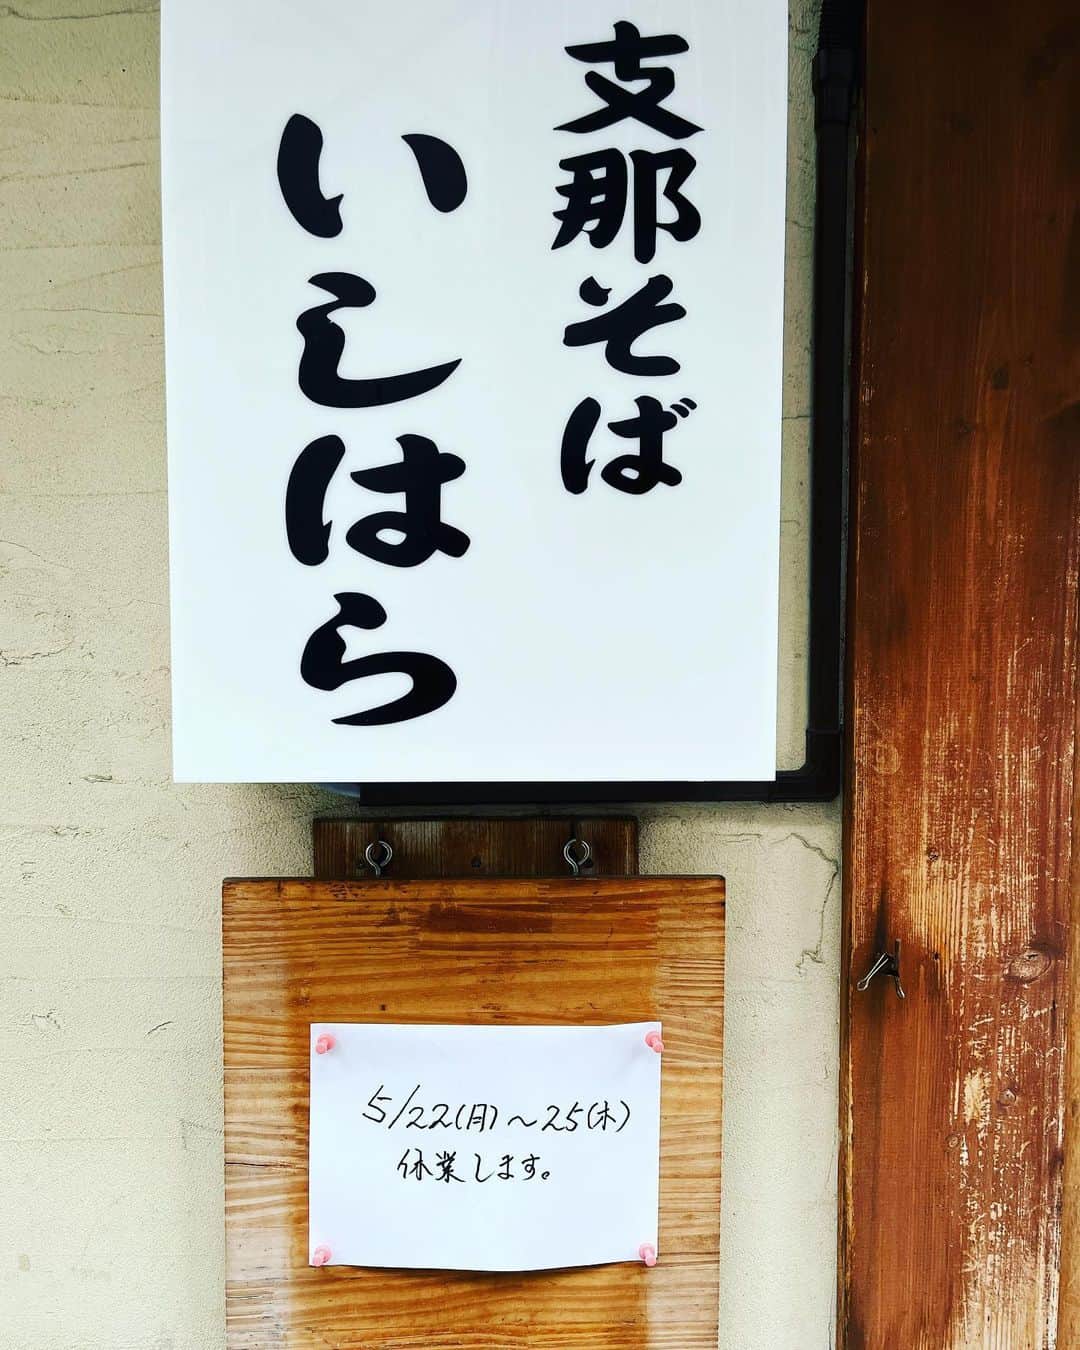 支那そば
いしはら
5/22(月)～25(木)
休業します。